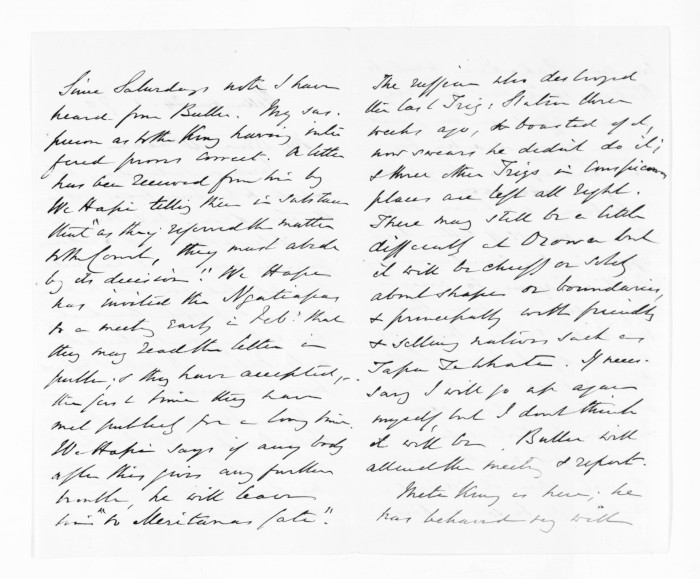 Since Saturdays note I have
heard from Buller. My sus-
picion as to the King having inter
fered proves correct. A letter
has been received from him by
Te Hapi telling them in substance
that "as they referred the matter
to the Court, they must abide
by its decision". Te Hapi
has invited the Ngatiapas
to a meeting early in Feb: that
they may read the letter in
public, & they have accepted,
the first time they have
met publicly for a long time.
Te Hapi says if any body
after this gives any further
trouble, he will leave
him "to Meritanas fate".
The ruffian who destroyed
the last Trig: Station three
weeks ago, & boasted of it,
now swears he didn't do it;
& three other Trigs in conspicuous
places are left all right.
There may still be a little
difficulty at Oroua but
it will be chiefly or solely
about shape or boundaries,
& principally with friendly
& selling natives such as
Tapa Te Whata. If neces-
sary I will go up again
myself, but I don't think
it will be. Buller will
attend the meeting & report.
Mete King is here; he
has behaved very well